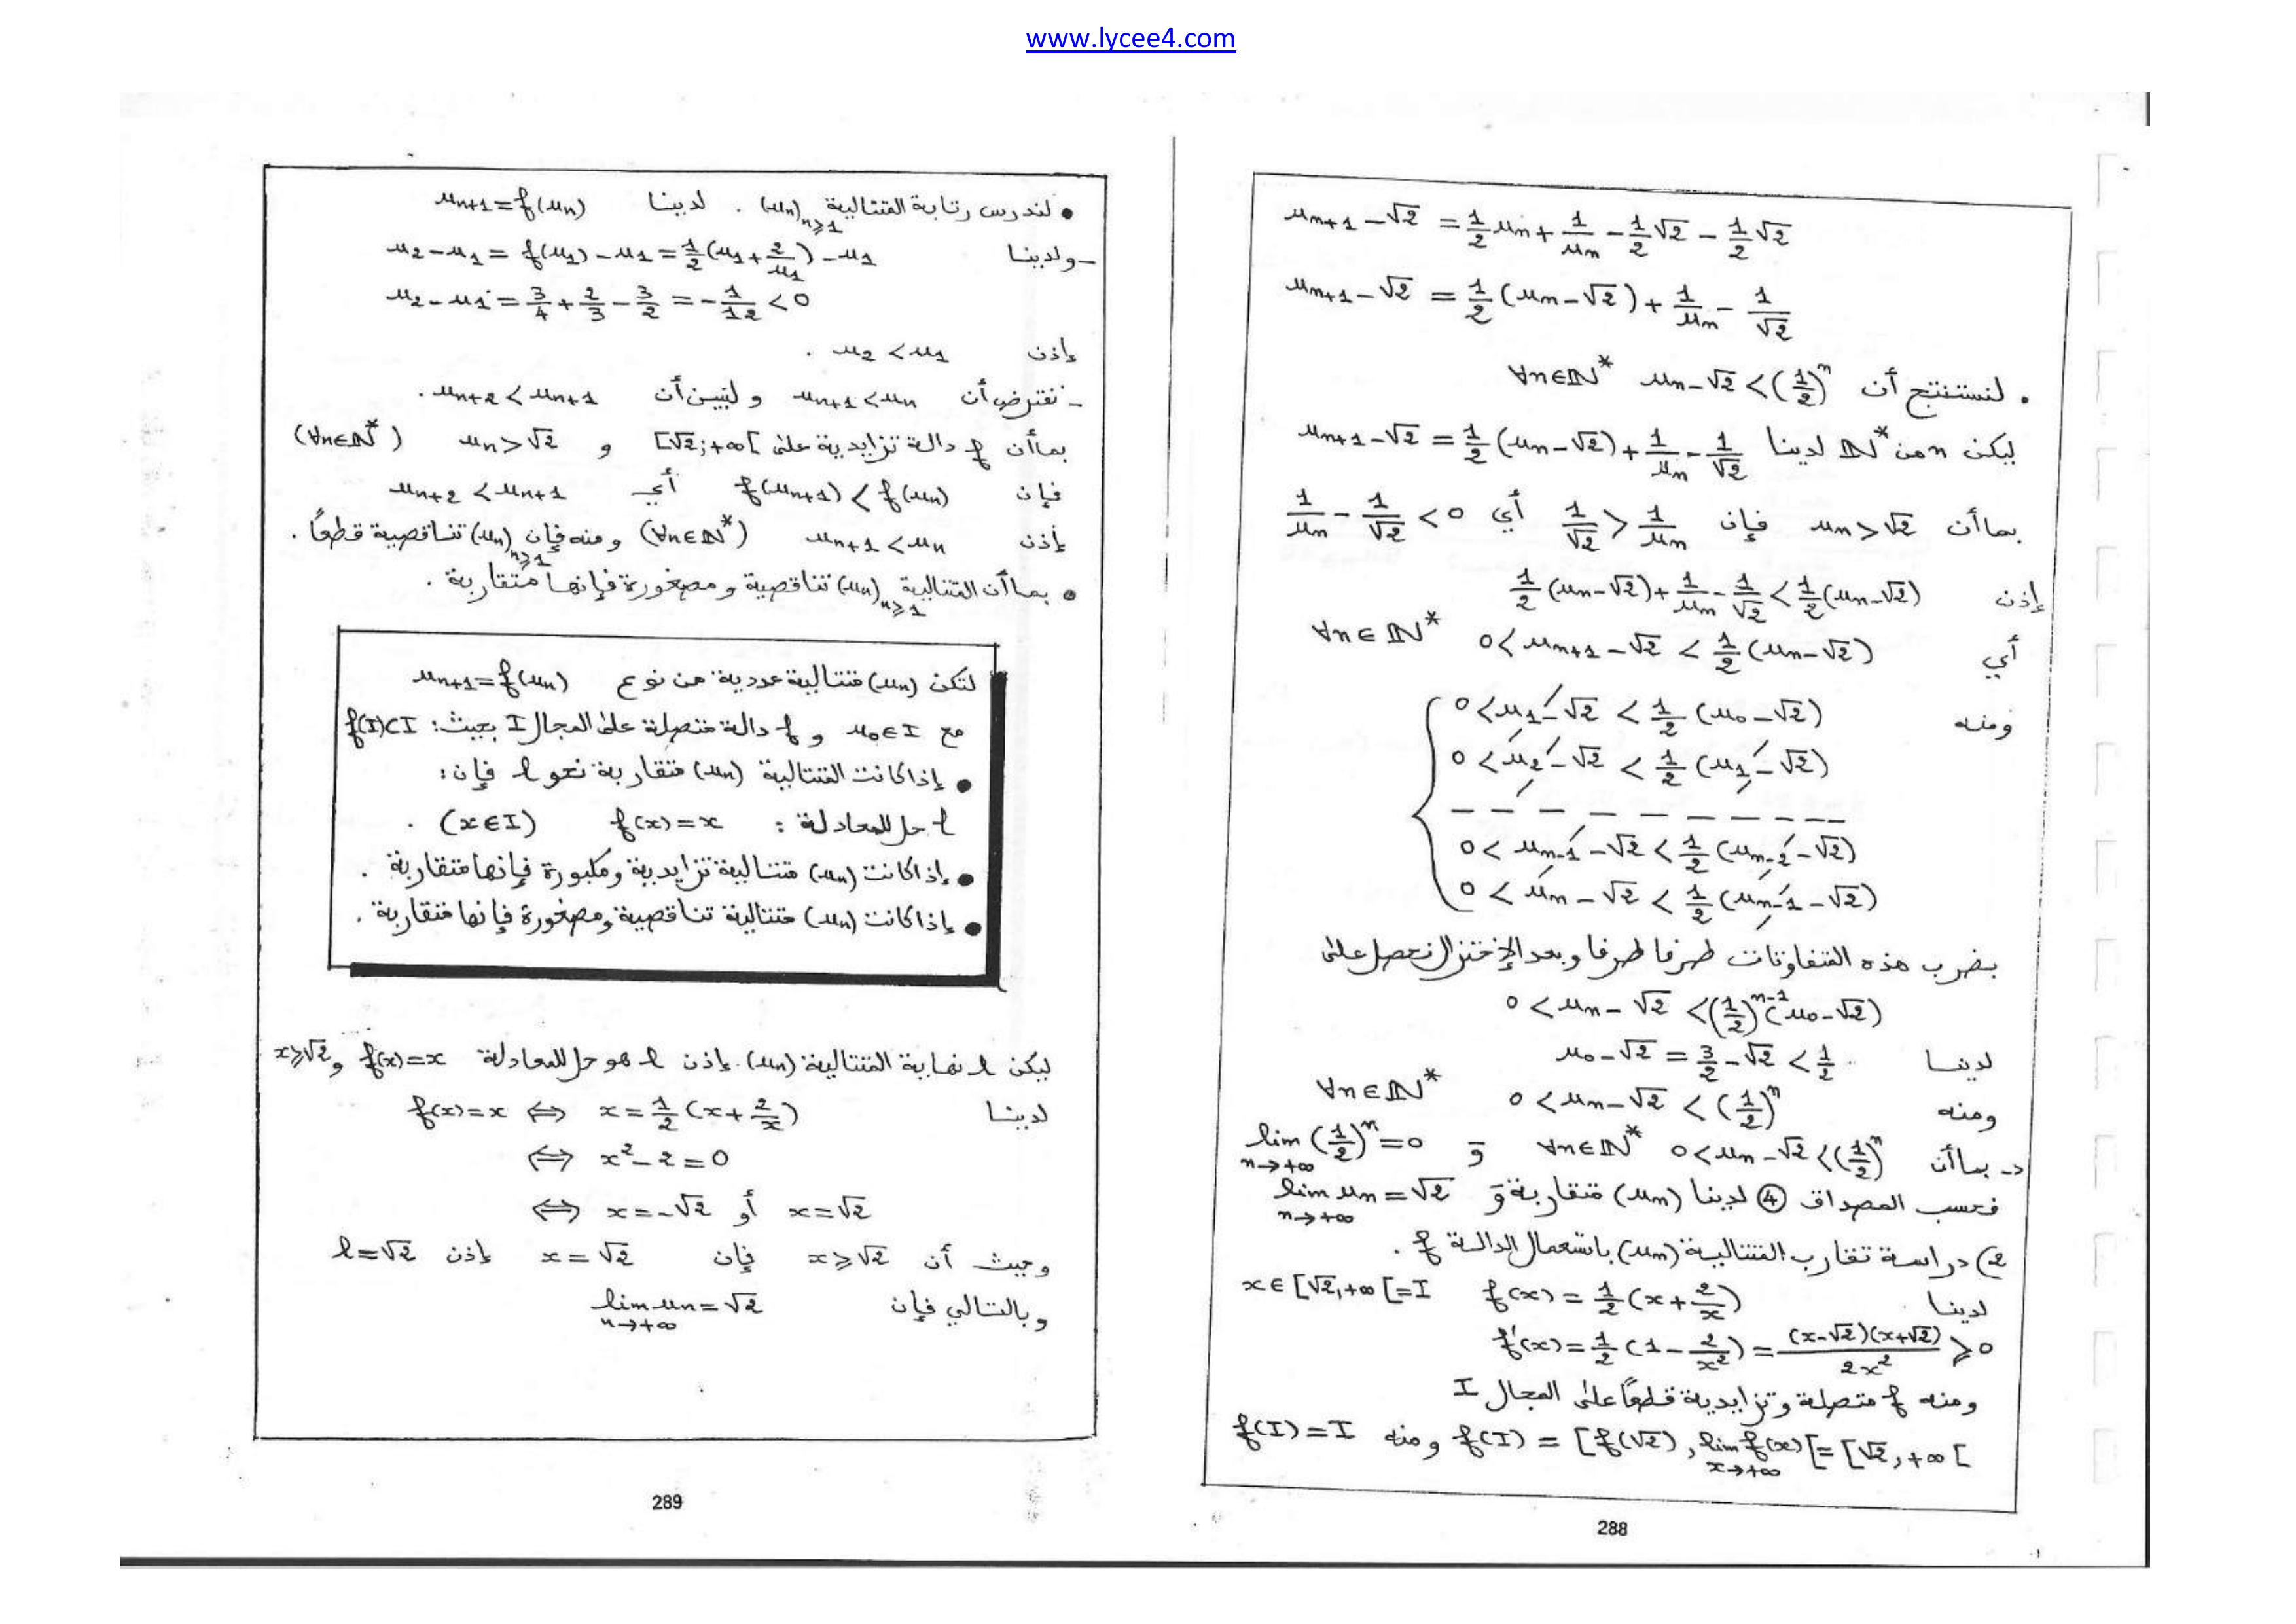 www.lycee4.com
uₙ₊₁ − √2 = 1/2 uₙ + 1/uₙ − 1/2 √2 − 1/2 √2
uₙ₊₁ − √2 = 1/2 (uₙ − √2) + 1/uₙ − 1/√2
• لنستنتج أن ∀n∈ℕ* uₙ − √2 < (1/2)ⁿ
ليكن n من ℕ* لدينا uₙ₊₁ − √2 = 1/2 (uₙ − √2) + 1/uₙ − 1/√2
بما أن uₙ > √2 فإن 1/√2 > 1/uₙ أي 1/uₙ − 1/√2 < 0
إذن 1/2 (uₙ − √2) + 1/uₙ − 1/√2 < 1/2 (uₙ − √2)
أي 0 < uₙ₊₁ − √2 < 1/2 (uₙ − √2) ∀n∈ℕ*
ومنه 0 < u₁ − √2 < 1/2 (u₀ − √2)
0 < u₂ − √2 < 1/2 (u₁ − √2)
– – – – – – – – –
0 < uₙ₋₁ − √2 < 1/2 (uₙ₋₂ − √2)
0 < uₙ − √2 < 1/2 (uₙ₋₁ − √2)
بضرب هذه المتفاوتات طرفا طرفا وبعد الإختزال نحصل على
0 < uₙ − √2 < (1/2)ⁿ⁻¹ (u₀ − √2)
لدينا u₀ − √2 = 3/2 − √2 < 1/2
ومنه 0 < uₙ − √2 < (1/2)ⁿ ∀n∈ℕ*
د- بما أن ∀n∈ℕ* 0 < uₙ − √2 < (1/2)ⁿ و lim (1/2)ⁿ = 0 n→+∞
فحسب المصداق ④ لدينا (uₙ) متقاربة و lim uₙ = √2 n→+∞
2) دراسة تقارب المتتالية (uₙ) باستعمال الدالة f .
لدينا f(x) = 1/2 (x + 2/x) x∈[√2,+∞[ = I
f'(x) = 1/2 (1 − 2/x²) = (x−√2)(x+√2)/2x² ⩾ 0
ومنه f متصلة وتزايدية قطعاً على المجال I
f(I) = [f(√2), lim f(x)[ = [√2,+∞[ x→+∞ ومنه f(I) = I
288
• لندرس رتابة المتتالية (uₙ)ₙ⩾₁ . لدينا uₙ₊₁ = f(uₙ)
- ولدينا u₂ − u₁ = f(u₁) − u₁ = 1/2 (u₁ + 2/u₁) − u₁
u₂ − u₁ = 3/4 + 2/3 − 3/2 = −1/12 < 0
إذن u₂ < u₁ .
- نفترض أن uₙ₊₁ < uₙ و لنبين أن uₙ₊₂ < uₙ₊₁ .
بما أن f دالة تزايدية على [√2;+∞[ و uₙ > √2 (∀n∈ℕ*)
فإن f(uₙ₊₁) < f(uₙ) أي uₙ₊₂ < uₙ₊₁
إذن uₙ₊₁ < uₙ (∀n∈ℕ*) ومنه فإن (uₙ)ₙ⩾₁ تناقصية قطعاً .
• بما أن المتتالية (uₙ)ₙ⩾₁ تناقصية ومصغورة فإنها متقاربة .
لتكن (uₙ) متتالية عددية من نوع uₙ₊₁ = f(uₙ)
مع u₀∈I و f دالة متصلة على المجال I بحيث: f(I)⊂I
• إذا كانت المتتالية (uₙ) متقاربة نحو ℓ فإن:
ℓ حل للمعادلة : f(x) = x (x∈I) .
• إذا كانت (uₙ) متتالية تزايدية ومكبورة فإنها متقاربة .
• إذا كانت (uₙ) متتالية تناقصية ومصغورة فإنها متقاربة .
ليكن ℓ نهاية المتتالية (uₙ). إذن ℓ هو حل للمعادلة f(x) = x و x⩾√2
لدينا f(x) = x ⟺ x = 1/2 (x + 2/x)
⟺ x² − 2 = 0
⟺ x = −√2 أو x = √2
وحيث أن x⩾√2 فإن x = √2 إذن ℓ = √2
وبالتالي فإن lim uₙ = √2 n→+∞
289